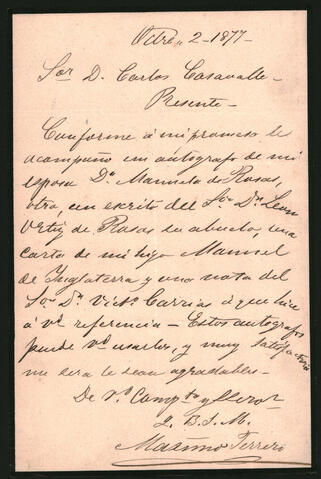 Octre. 2-1877-
Sor D. Carlos Casavalle-
Presente-
Conforme á mi promesa le
acompaño un autógrafo de mi
esposa Da. Manuela de Rosas,
otro, un escrito del Sor. Dn. Leon
Ortiz de Rosas su abuelo, una
carta de mi hijo Manuel
de Inglaterra y una nota del
Sor. Dn. Victo. Carrias á que hice
á Vd. referencia-Estos autografos
puede Vd. usarlos, y muy satisfactorio
me sera le sean agradables-
De Vd.
Q. B. S. M.
Maximo Terrero